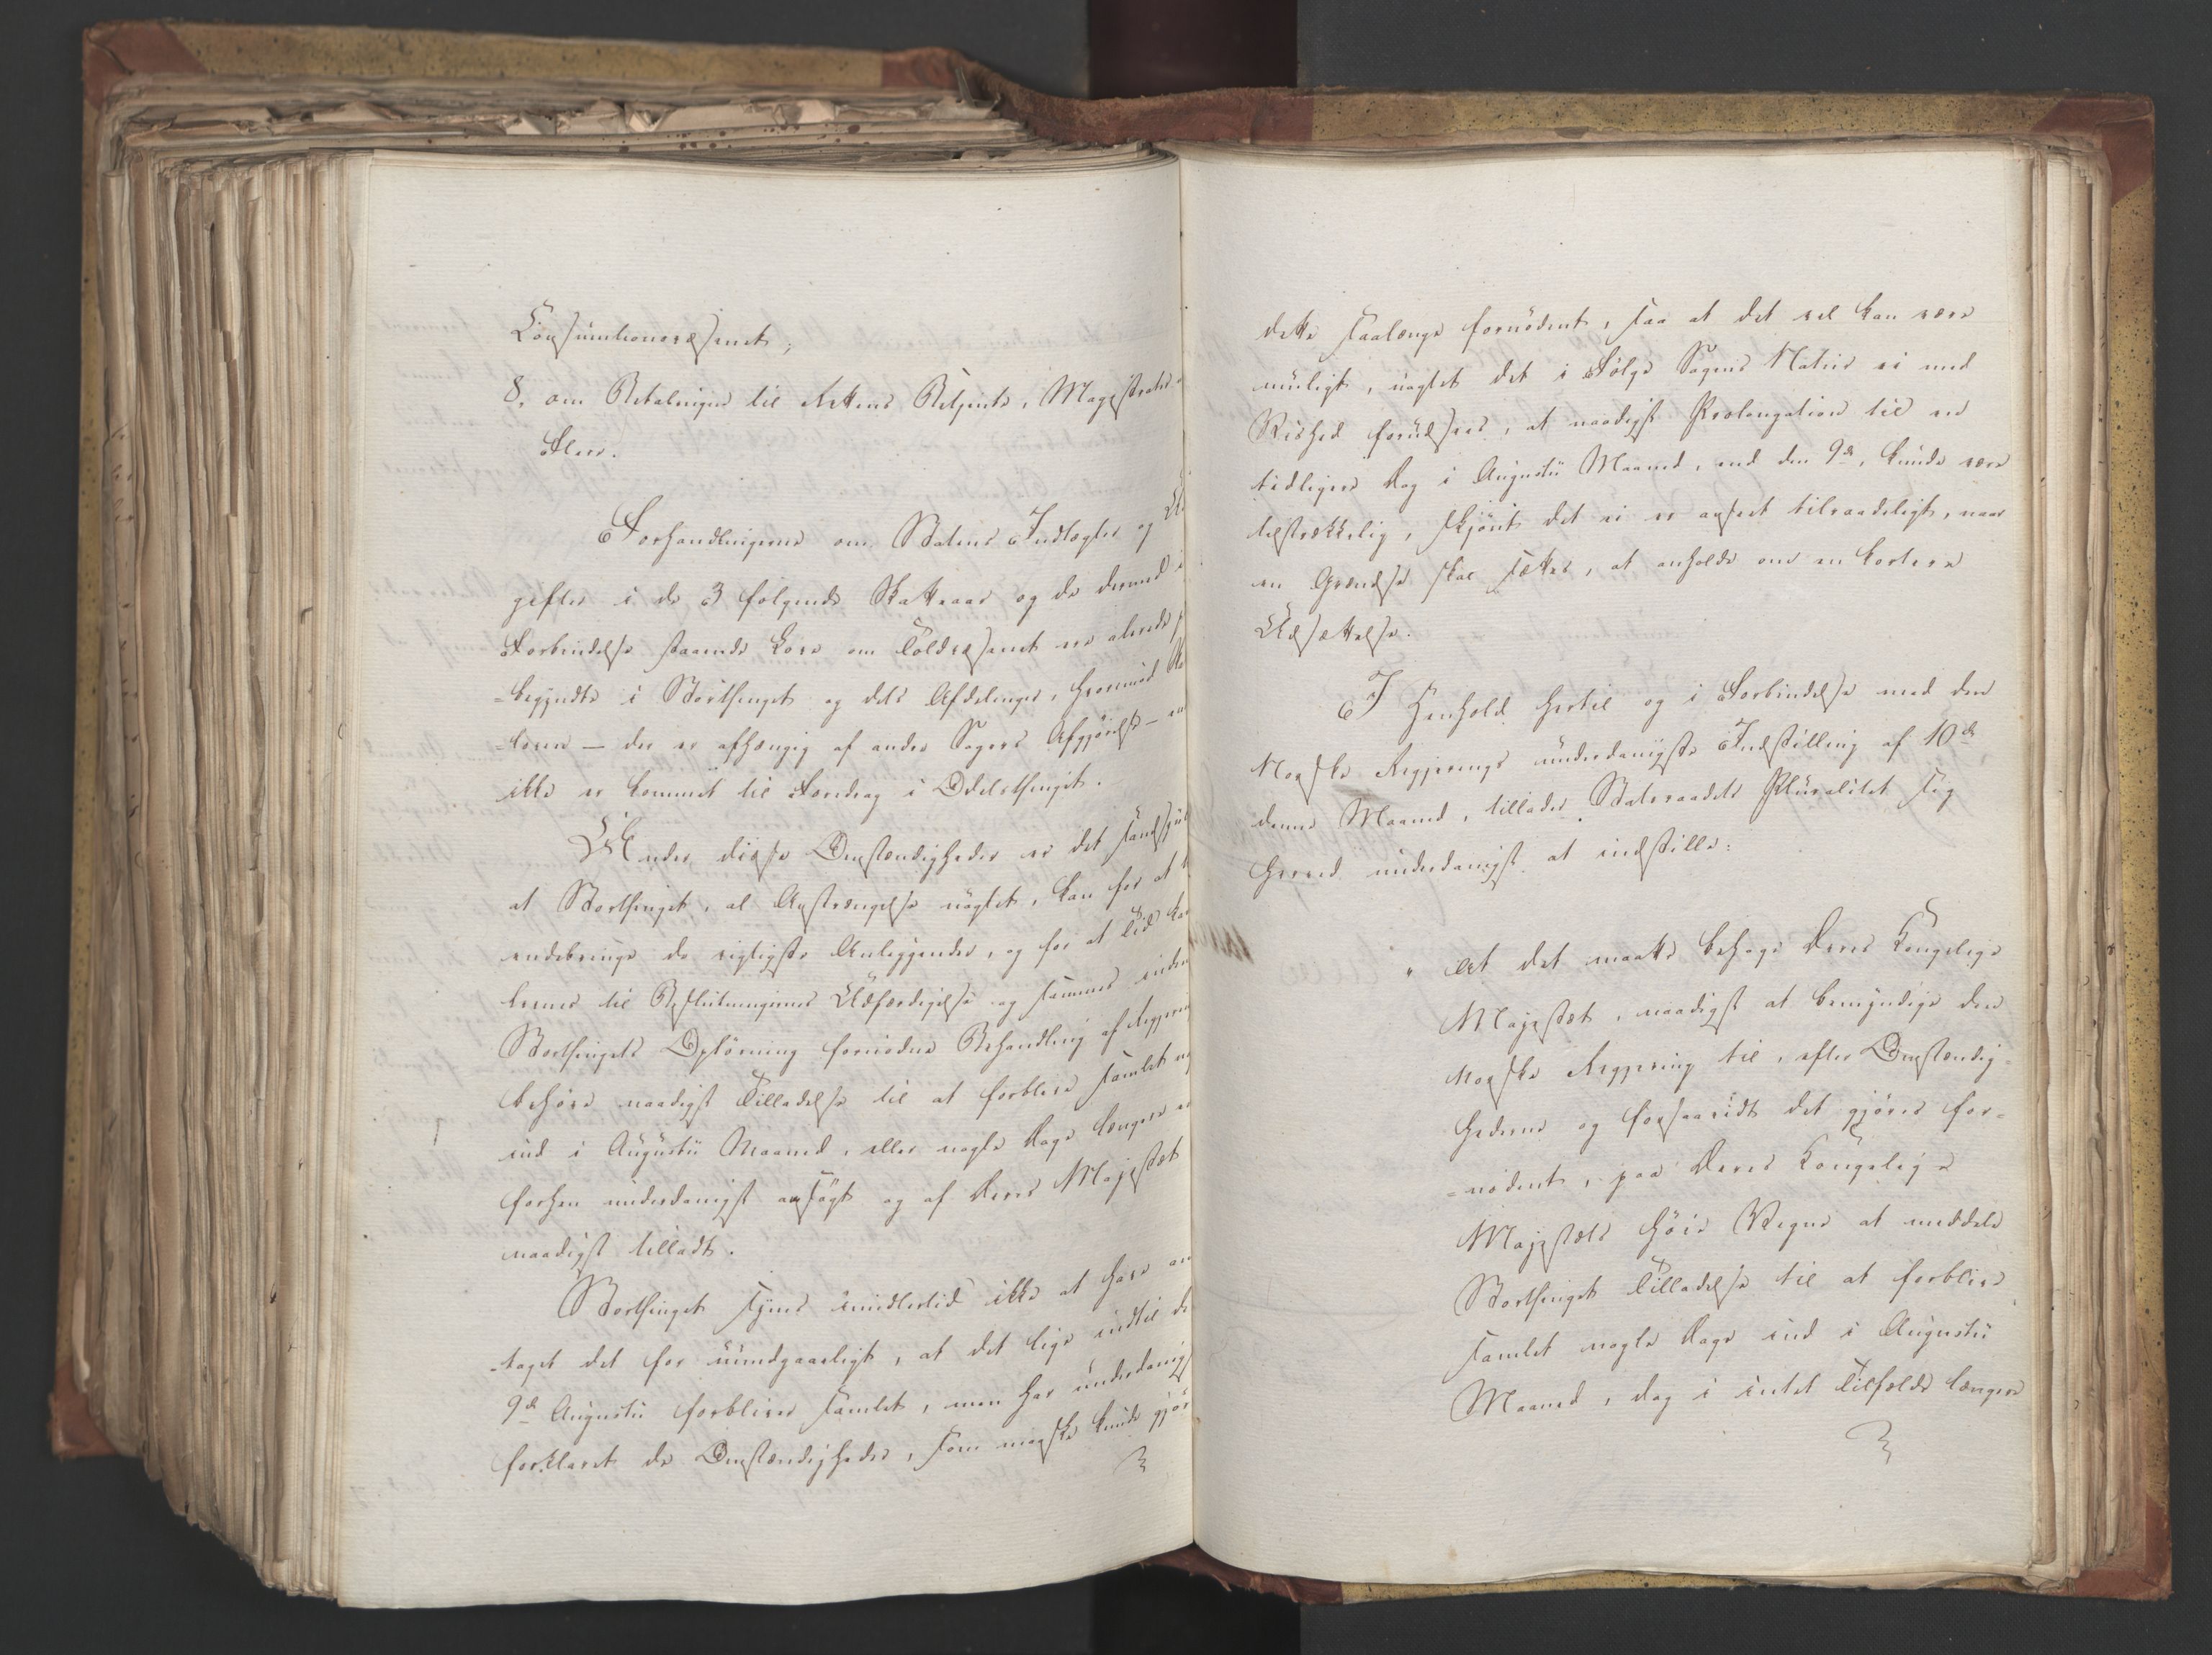 Consumtionsvæsenet;
8, om Betalinger til Rettens Betjente, Magistrater
Flere.
Forhandlingerne om Statens Indtægter og U
gifter i de 3 følgende Skatteaar og de dermed i
Forbindelse staaende Love om Toldvæsenet ere allerede
-begyndte i Storthinget og dets Afdelinger, hvorimod
-loven — der er afhængig af andre Sagers Afgjørelse — en
ikke er kommet til Foredrag i Odelsthinget.
Under disse Omstændigheder er det
at Storthinget, al Anstrængelse uagtet, kan for at
endebringe de vigtigste Anliggender, og for at Tid kan
levnes til Beslutningernes Udfærdigelse og sammes inden
Storthingets Opløsning fornødne Behandling af Regjering
behøve naadigst Tilladelse til at forblive samlet
ind i Augusti Maaned, eller nogle Dage længere en
forhen underdanigst ansøgt og af Deres Majestæt
naadigst tilladt.
Storthinget synes imidlertid ikke at have an
-taget det for uundgaaeligt, at det lige indtil de
9de Augusti forbliver samlet, men har underdanigst
forklaret de Omstændigheder, som maaske kunde gjøre
dette saalænge fornødent, saa at det vel kan være
muligt, uagtet det i Følge Sagens Natur ei med
Vished forudsees, at naadigst Prolongation til en
tidligere Dag i Augusti Maaned, end den 9de, kunde være
tilstrækkelig, skjönt det ei er anseet tilraadeligt, naar
en Grændse skal sættes, at anholde om en kortere
Udsættelse.
I Henhold hertil og i Forbindelse med den
Norske Regjerings underdanigste Indstilling af 10de
denne Maaned, tillader Statsraadets Pluralitet sig
herved underdanigst at indstille:
" At det maatte behage Deres Kongelige
Majestæt, naadigst at bemyndige den
Norske Regjering til, efter Omstændig-
hederne og forsaavidt det gjøres for-
-nødent, paa Deres Kongelige
Majestæts Høie Vegne at meddele
Storthinget Tilladelse til at forblive
samlet nogle Dage ind i Augusti
Maaned, dog i intet Tilfælde længere